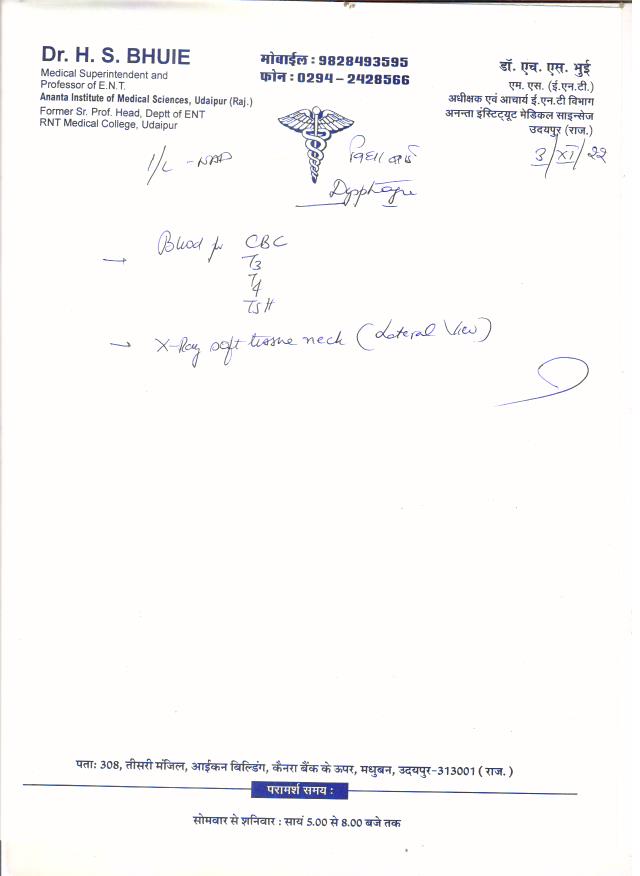 Dr. H. S. BHUIE
Medical Superintendent and
Professor of E.N.T.
Ananta Institute of Medical Sciences, Udaipur (Raj.)
Former Sr. Prof. Head, Deptt of ENT
RNT Medical College, Udaipur
मोबाईल : 9828493595
फोन : 0294 – 2428566
डॉ. एच. एस. भुई
एम. एस. (ई.एन.टी.)
अधीक्षक एवं आचार्य ई.एन.टी विभाग
अनन्ता इंस्टिट्यूट मेडिकल साइन्सेज
उदयपुर (राज.)
3/XI/22
I/L - NAD
Dysphagia
→ Blood for CBC
T3
T4
TSH
→ X-Ray soft tissue neck (Lateral View)
पताः 308, तीसरी मंजिल, आईकन बिल्डिंग, कैनरा बैंक के ऊपर, मधुबन, उदयपुर-313001 ( राज. )
परामर्श समय :
सोमवार से शनिवार : सायं 5.00 से 8.00 बजे तक